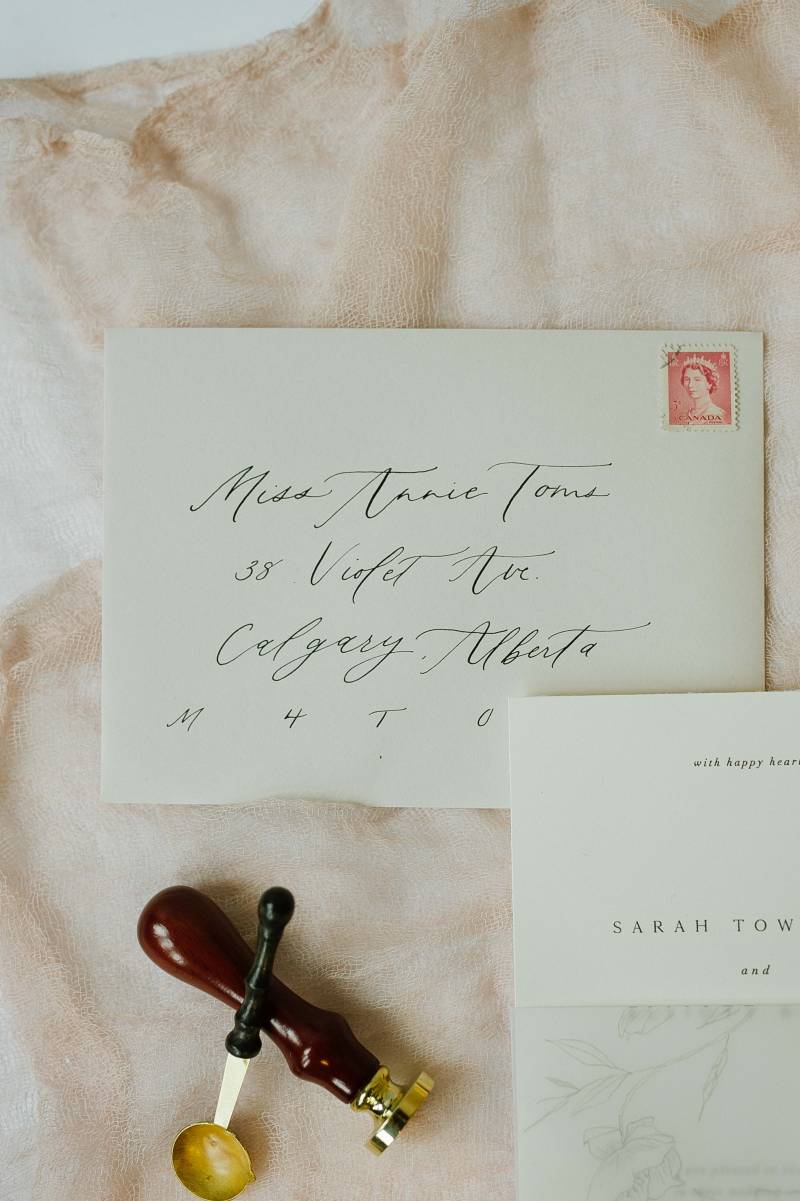 CANADA
Miss Annie Toms
38 Violet Ave.
Calgary, Alberta
M 4 T 0
with happy hear
SARAH TOW
and